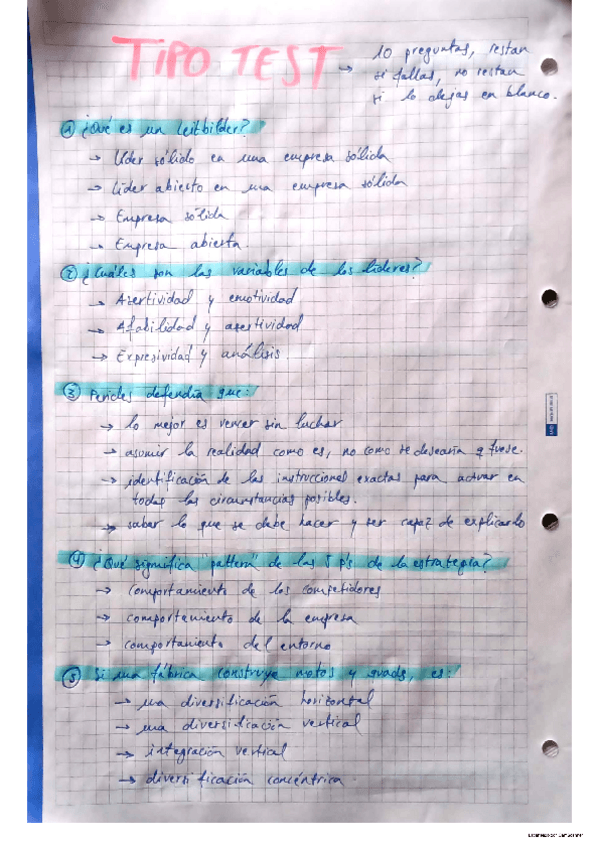 TIPO TEST → 10 preguntas, restan
si fallas, no restan
si lo dejas en blanco.
① ¿Qué es un leitbilder?
→ Líder sólido en una empresa sólida
→ Líder abierto en una empresa sólida
→ Empresa sólida
→ Empresa abierta.
2 ¿Cuáles son las variables de los líderes?
→ Asertividad y emotividad
→ Afabilidad y asertividad
→ Expresividad y análisis.
③ Pericles defendía que:
→ lo mejor es vencer sin luchar
→ asumir la realidad como es, no como se desearía q fuese.
→ identificación de las instrucciones exactas para actuar en
todas las circunstancias posibles.
→ saber lo que se debe hacer y ser capaz de explicarlo
④ ¿Qué significa "pattern" de las 5 p's de la estrategia?
→ comportamiento de los competidores
→ comportamiento de la empresa
→ comportamiento del entorno
⑤ Si una fábrica construye motos y quads, es:
→ una diversificación horizontal
→ una diversificación vertical
→ integración vertical
→ diversificación concéntrica.